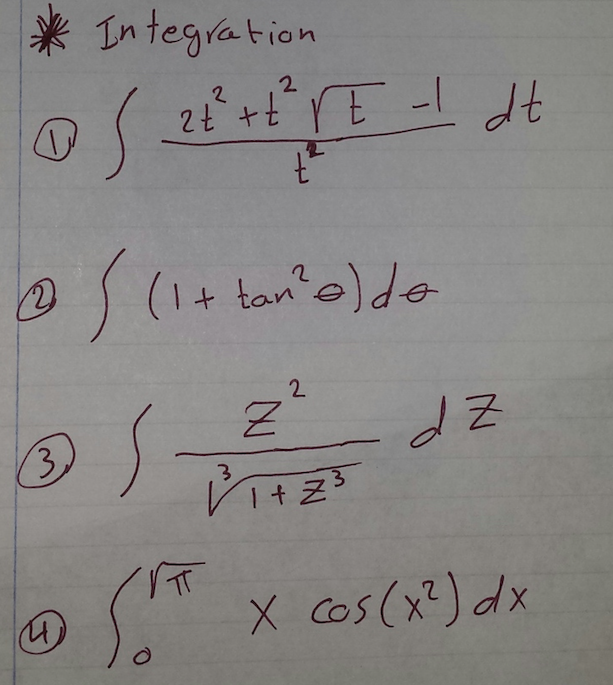 * Integration
① ∫ (2t² + t²√t - 1)/t² dt
② ∫ (1 + tan²θ) dθ
③ ∫ z²/∛(1 + z³) dz
④ ∫₀^√π x cos(x²) dx